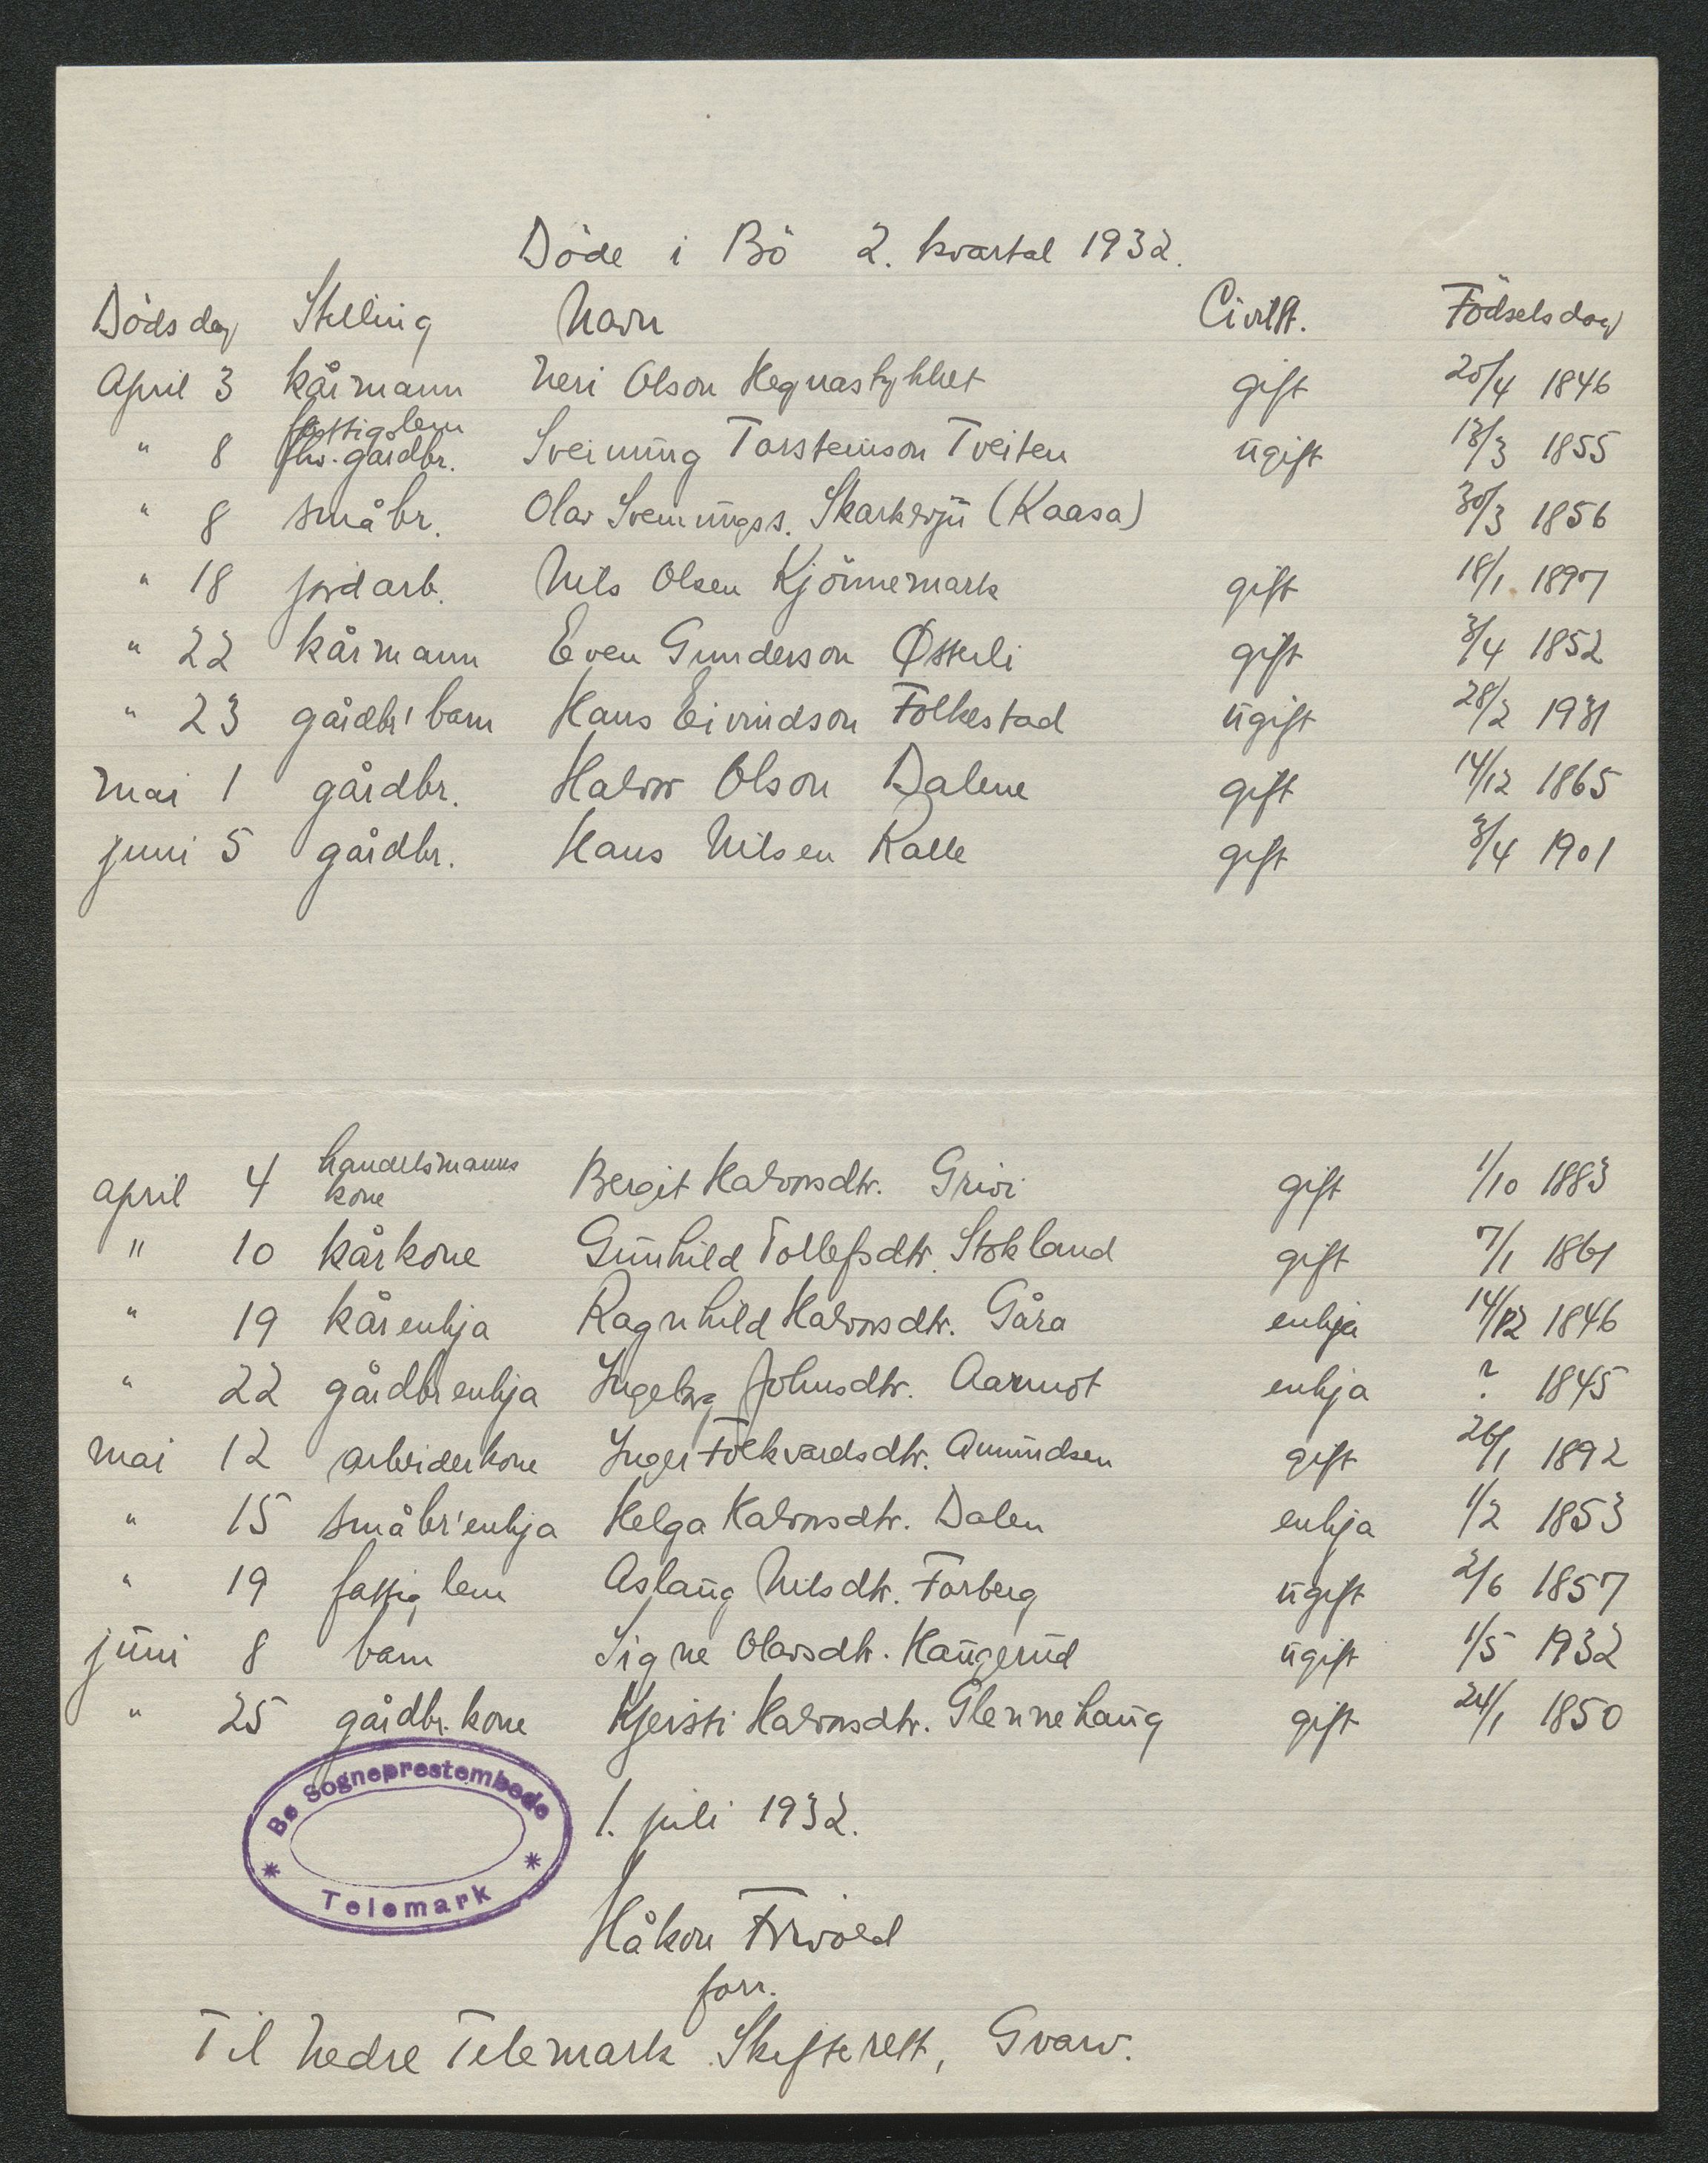 Döde i Bö 2. kvartal 1932.
Dödsdag Stilling Navn Civilst. Födselsdag
April 3 kårmann Neri Olson Hegnastykket gift 20/4 1846
fattiglem
" 8 fhv. gårdbr. Sveinung Torsteinson Tveiten ugift 13/3 1855
" 8 småbr. Olav Sveinungss. (Kaasa) 30/3 1856
" 18 jordarb. Nils Olsen Kjönnemark gift 18/1 1897
" 22 kårmann Even Gunderson Østerli gift 3/4 1852
" 23 gårdbr' barn Hans Eivindson Folkestad ugift 28/2 1931
mai 1 gårdbr. Halvor Olson Dalene gift 14/12 1865
juni 5 gårdbr. Hans Nilsen Kalle gift 3/4 1901
april 4 handelsmanns kone Bergit Halvorsdtr. Grivi gift 1/10 1883
" 10 kårkone Gunhild Tollefsdtr. Stokland gift 7/1 1861
" 19 kårenkja Ragnhild Halvorsdtr. Gåra enkja 14/12 1846
" 22 gårdbrenkja Ingeborg Johnsdtr. Aarmot enkja ? 1845
mai 12 arbeiderkone Inger Folkvardsdtr. Amundsen gift 26/1 1892
" 15 småbr'enkja Helga Halvorsdtr. Dalen enkja 1/2 1853
" 19 fattiglem Aslaug Nilsdtr. Forberg ugift 2/6 1857
juni 8 barn Signe Olavsdtr. Haugerud ugift 1/5 1932
" 25 gårdbr. kone Kjersti Halvorsdtr. Glennehaug gift 24/1 1850
Bø Sogneprestembede
* *
Telemark
1. juli 1932.
Håkon
forr.
Til Nedre Telemark Skifterett, Gvarv.